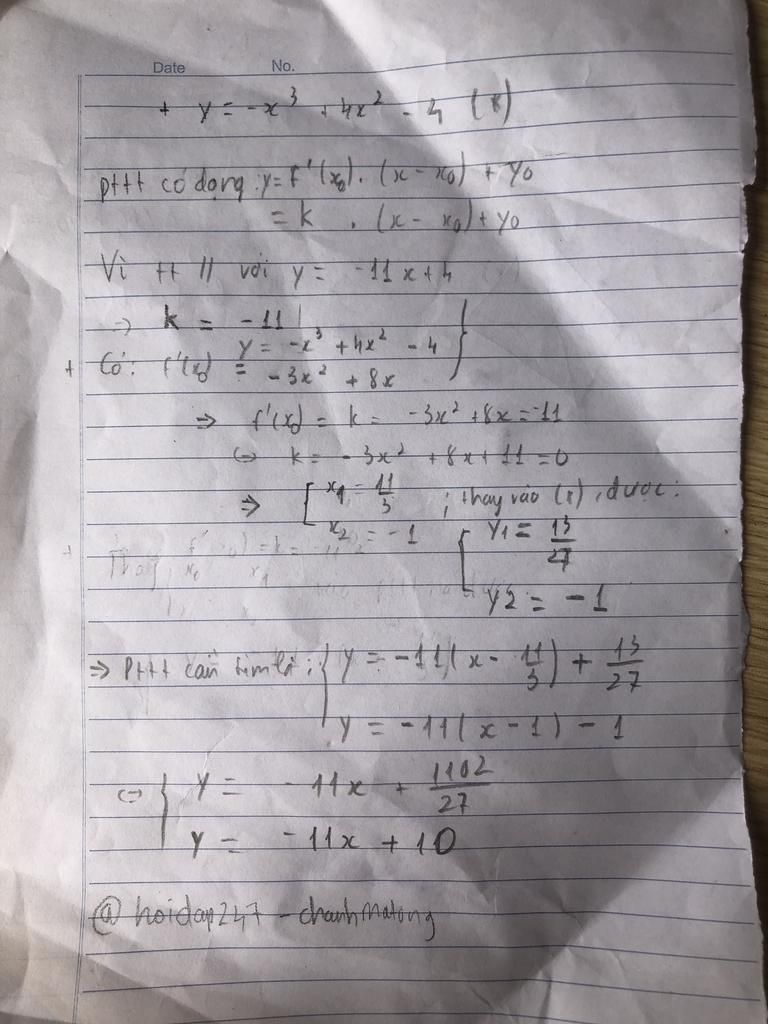 Date No.
+ y = -x³ + 4x² - 4 (*)
pttt có dạng: y = f'(x₀). (x - x₀) + y₀
= k . (x - x₀) + y₀
Vì tt // với y = -11x + 4
⇒ k = -11
y = -x³ + 4x² - 4
+ Có: f'(x₀) = -3x² + 8x
⇒ f'(x₀) = k = -3x² + 8x = -11
⇔ k = -3x² + 8x + 11 = 0
⇒ [ x₁ = 11/3 ; thay vào (*), được:
x₂ = -1 [ y₁ = 13/27
y2 = -1
⇒ Pttt cần tìm là: { y = -11(x - 11/3) + 13/27
y = -11(x - 1) - 1
⇔ { y = -11x + 1102/27
y = -11x + 10
@hoidap247 - chanhmatong